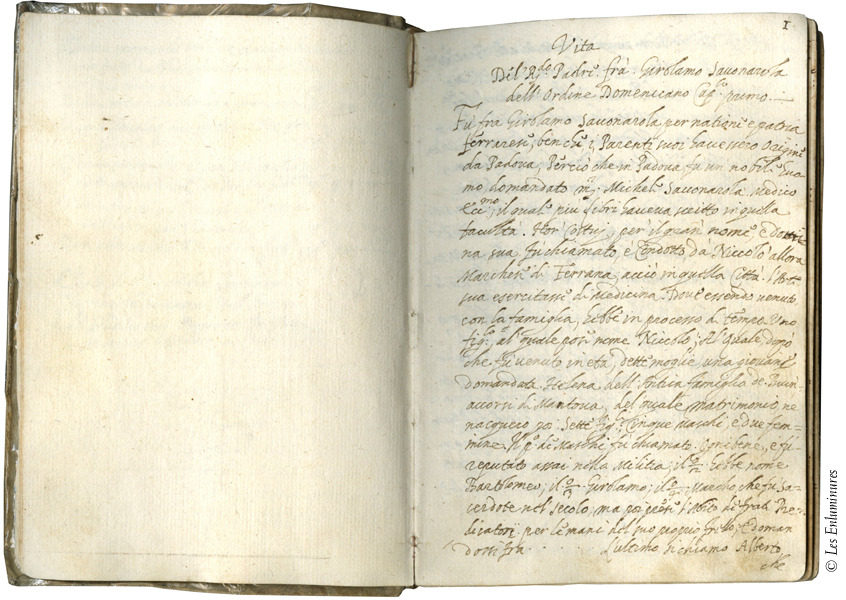 1
Vita
Del R.do Padre fra Girolamo Savonarola
dell'Ordine Domenicano Cap.lo primo.
Fù fra Girolamo Savonarola, per natione e patria
Ferrarese, benche i Parenti suoi havessero Origine
da Padova, Perciò che in Padova fu un nobile huo
mo domandato m. Michele Savonarola Medico
ecc.mo, il quale più libri haveva scritto in quella
facultà. Hor costui per il gran nome e dottri
na sua fù chiamato, e condotto da Niccolò allora
Marchese di Ferrara, acciò in quella Città l'Arte
sua esercitasse di Medicina. Dove essendo venuto
con la famiglia, hebbe in processo di tempo Uno
fig.lo al quale pose nome Niccolò, Al Quale dopò
che fù venuto in età, dette moglie una giovane
domandata Helena dell'Antica famiglia de Buon
accorsi di Mantova, del quale matrimonio ne
nacquero poi Sette fig.li Cinque Maschi, e due fem=
mine. Il p.o de Maschi fù chiamato Ognibene, e fù
reputato assai nella Militia; il 2.o hebbe nome
Bartolomeo; il 3.o Girolamo; il 4.o Maurelio che fù Sa
cerdote nel secolo, ma poi prese l'Abito di frati Pre
dicatori per le mani del suo proprio fratello, e doman
dossi fra L'ultimo si chiamò Alberto
che
© Les Enluminures